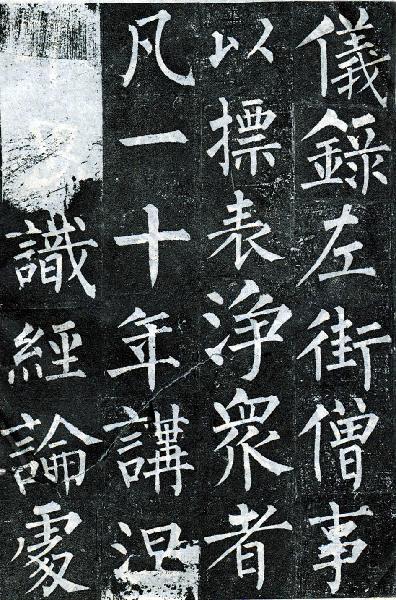 儀錄左街僧事
以標表淨眾者
凡一十年講涅
識經論處